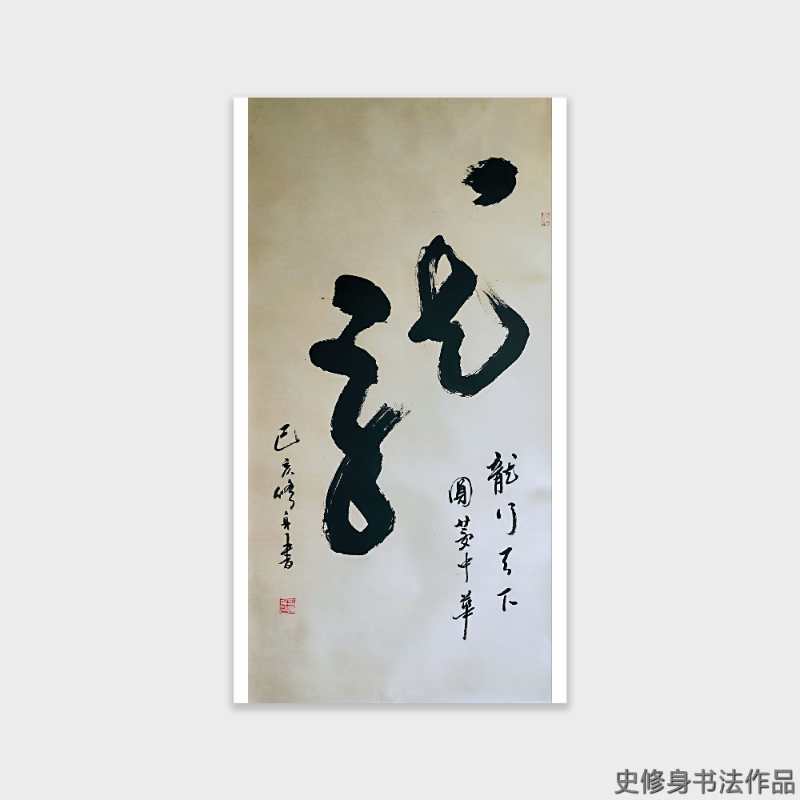 龍
龍行天下
圓夢中華
己亥修身書
史修身书法作品